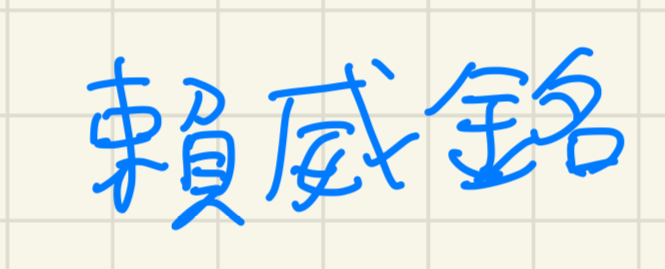 賴威銘